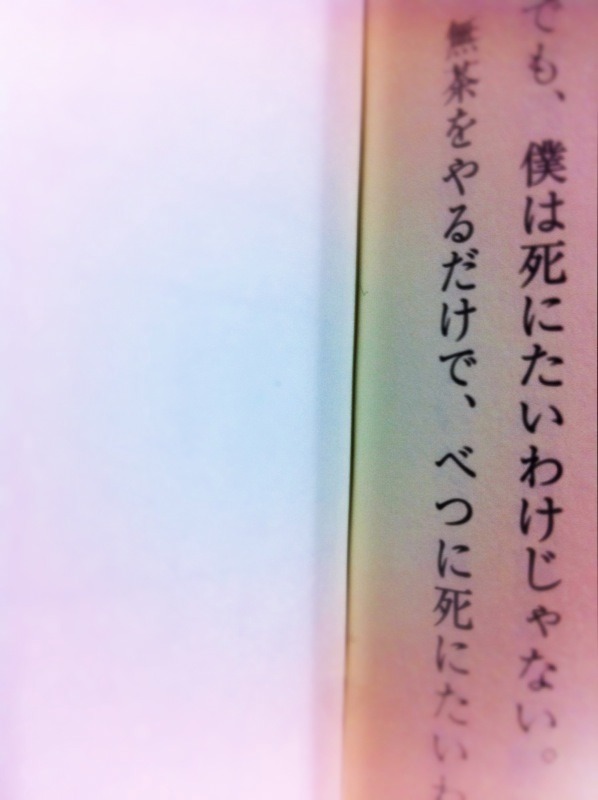 でも、僕は死にたいわけじゃない。
無茶をやるだけで、べつに死にたいわ